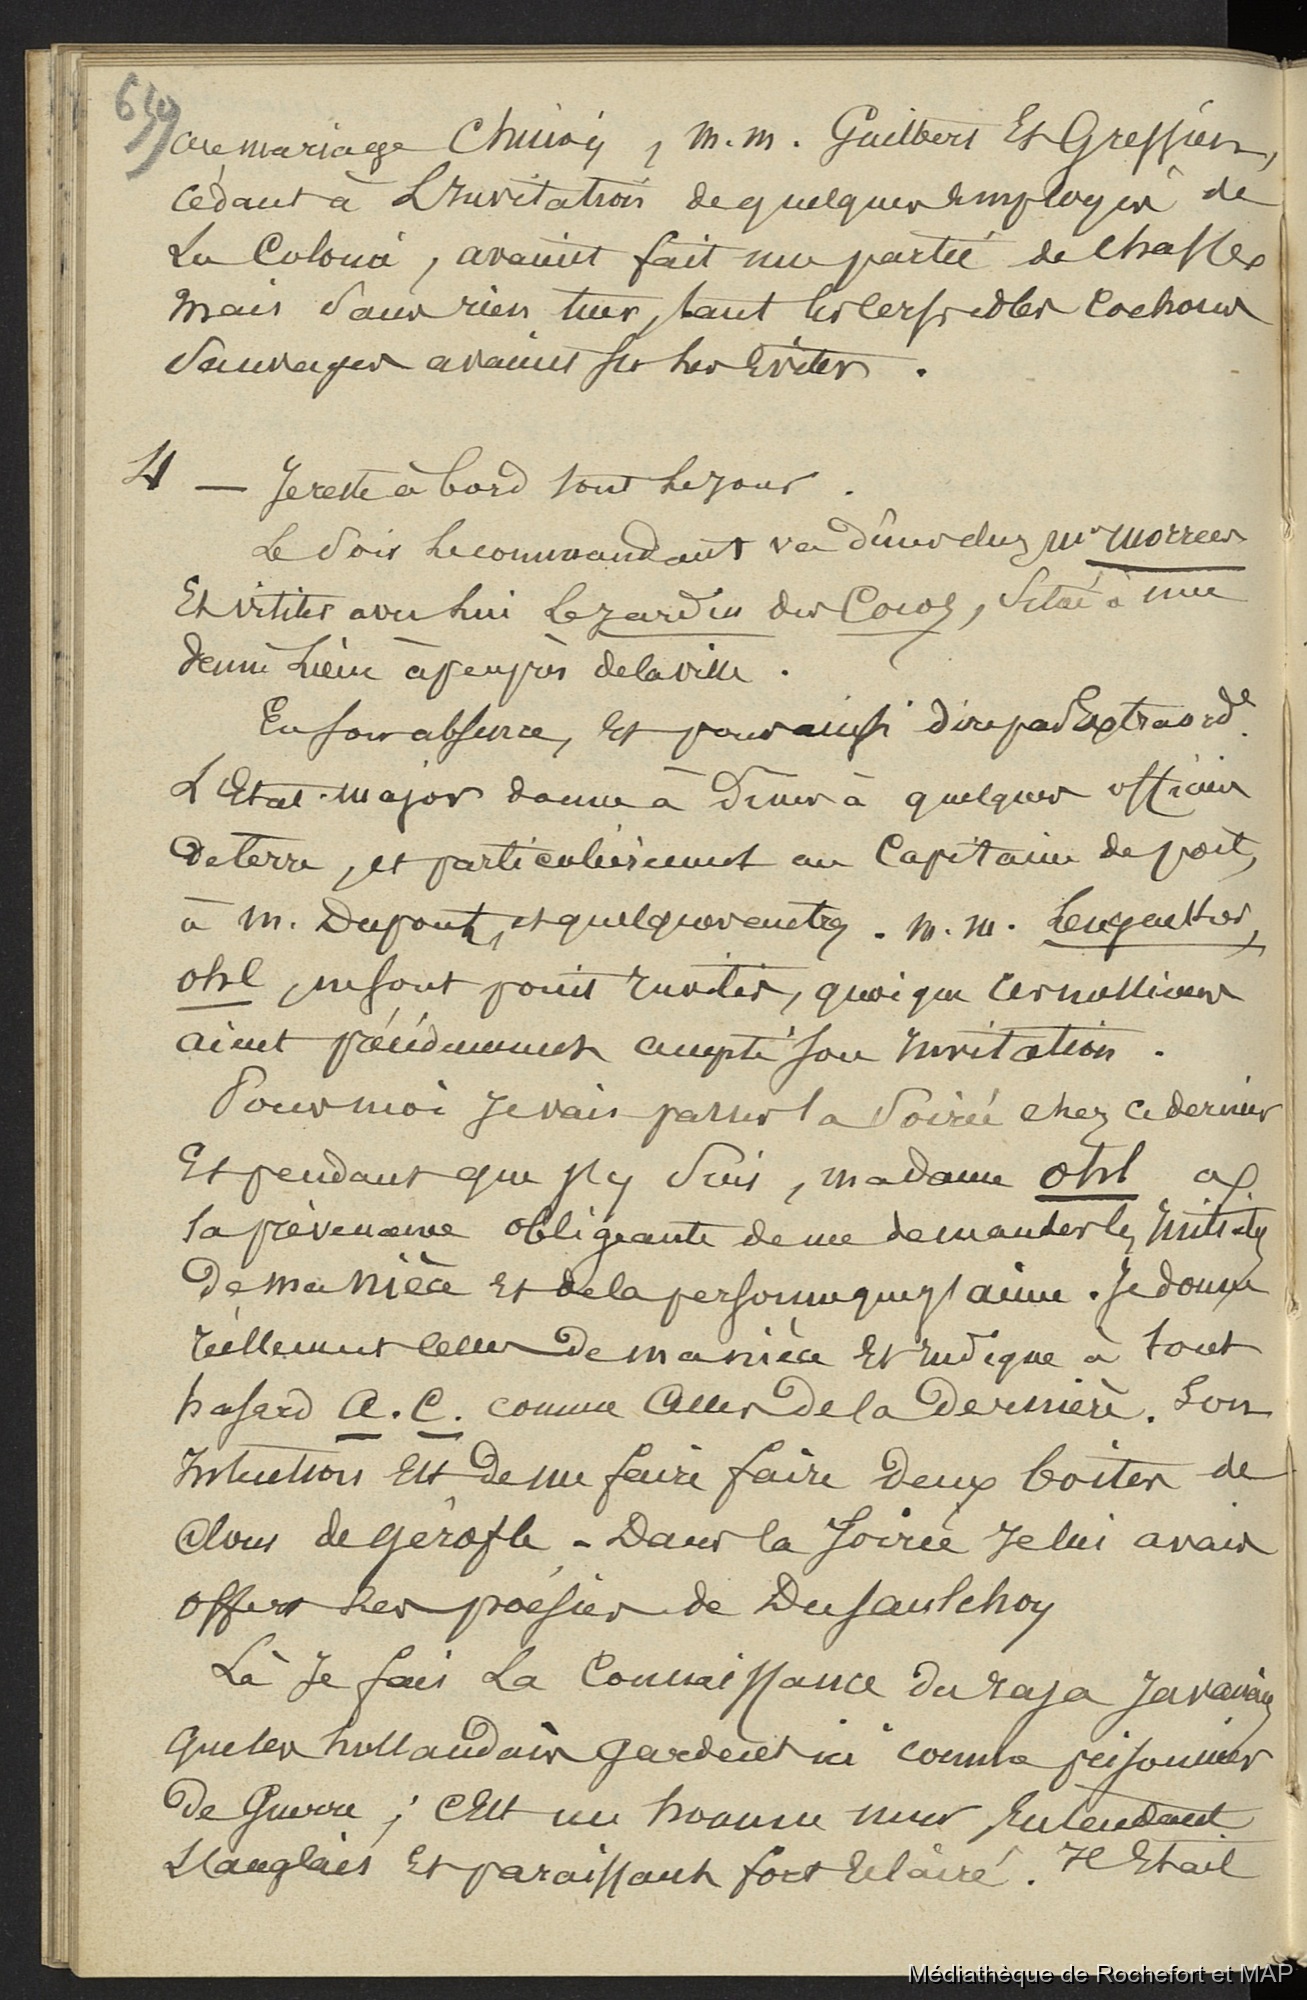 639
au mariage Chinois, M.M. Guilbert Et Gressien,
cédant à L'Invitation de quelques Employés de
La Colonie, avaient fait une partie de Chasse
Mais Sans rien tuer, tant les Cerfs et les Cochons
Sauvages avaient su les Eviter.
4 — Je reste à bord tout le jour.
Le Soir le commandant va dîner chez Mr Morrees
Et visiter avec lui Le jardin des Cocos, Situé à une
demi Lieue à peu près de la ville.
En son absence, Et pour ainsi dire par Extraord.e
L'Etat-Major donne à Diner à quelques officiers
De terre, et particulièrement au Capitaine de port,
à M. Dupont, et quelques autres. M.M.
ohl, ne sont point Invités, quoique ces messieurs
aient précédemment accepté son Invitation.
Pour moi Je vais passer la Soirée chez ce dernier
Et pendant que j'y Suis, madame ohl a
la prévenance obligeante de me demander les Initiales
De ma Nièce Et de la personne que j'aime. Je donne
réellement celles De ma nièce Et Indique à tout
hasard A. C. comme Celles De la Dernière. Son
Intention Est De me faire faire Deux boites de
Clous de gérofle - Dans la Soirée Je lui avais
offert Les poésies de Dusaulchoy
Là Je fais La Connaissance du raja Javanais
que les hollandais gardent ici comme prisonnier
De Guerre; C'Est un homme mur, Entendant
L'anglais Et paraissant fort Eclairé. Il Etait
Médiathèque de Rochefort et MAP